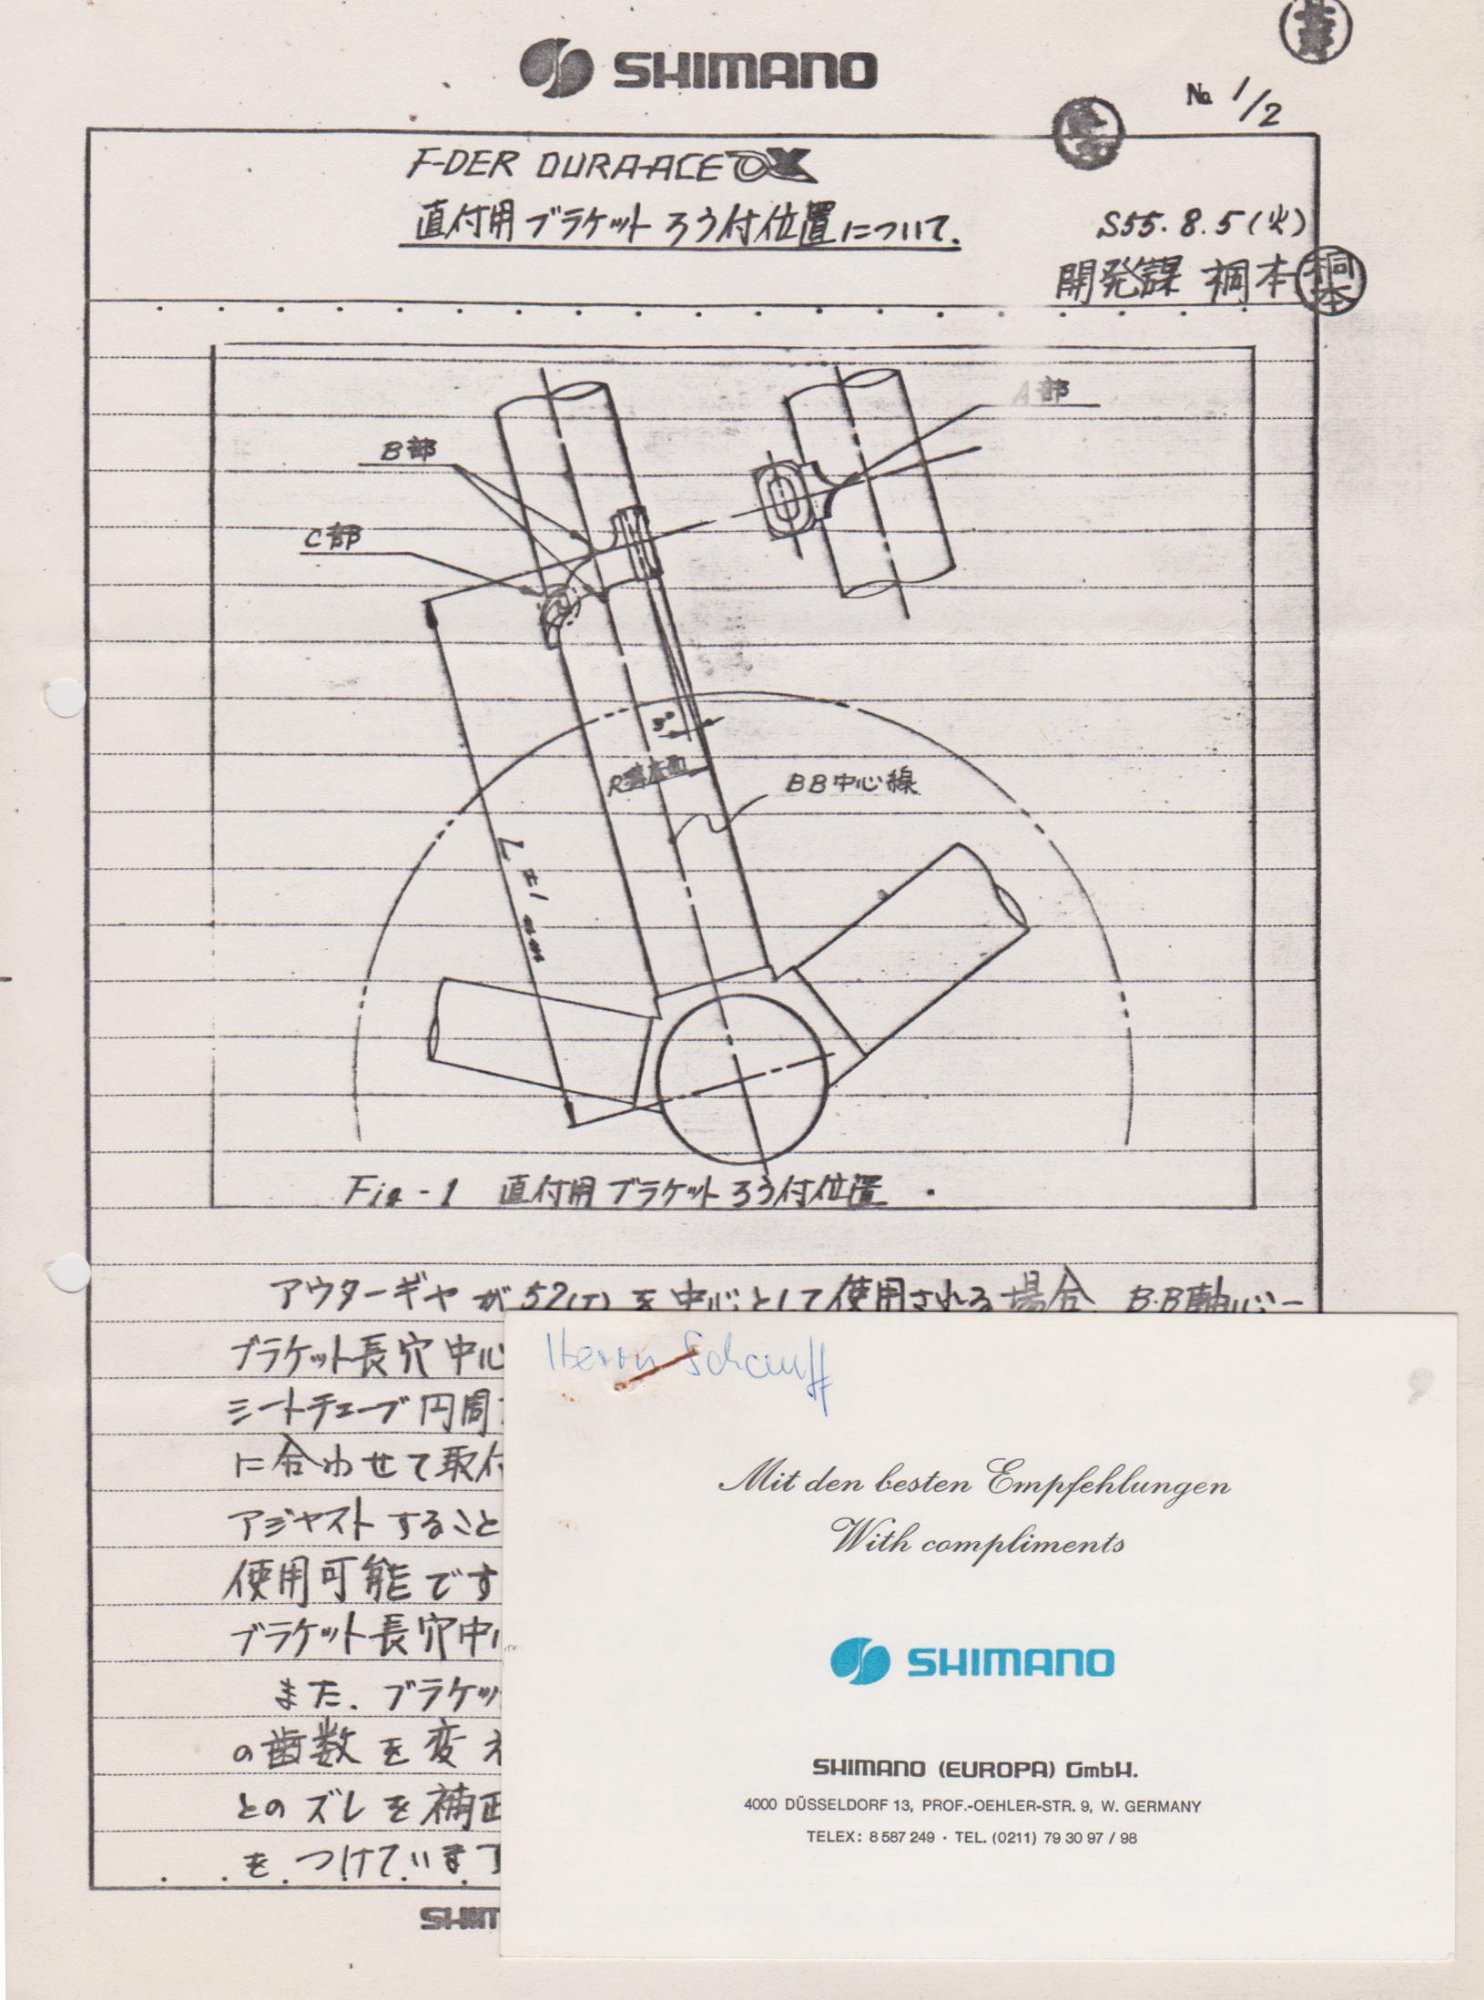 SHIMANO
No. 1/2
F-DER DURA-ACE AX
直付用ブラケットろう付位置について.
S55. 8. 5 (火)
開発課 桐本
桐本
A部
B部
C部
3°
BB中心線
L ±1 mm
Fig-1 直付用ブラケットろう付位置
アウターギヤが52(T)を中心として使用される場合 B.B軸心ー
ブラケット長穴中心
シートチューブ円周
に合わせて取付
アジャストすること
使用可能です
ブラケット長穴中心
また、ブラケッ
の歯数を変え
とのズレを補正
をつけています
Herrn Schauff
Mit den besten Empfehlungen
With compliments
SHIMANO
SHIMANO (EUROPA) GmbH.
4000 DÜSSELDORF 13, PROF.-OEHLER-STR. 9, W. GERMANY
TELEX: 8 587 249 · TEL. (0211) 79 30 97 / 98